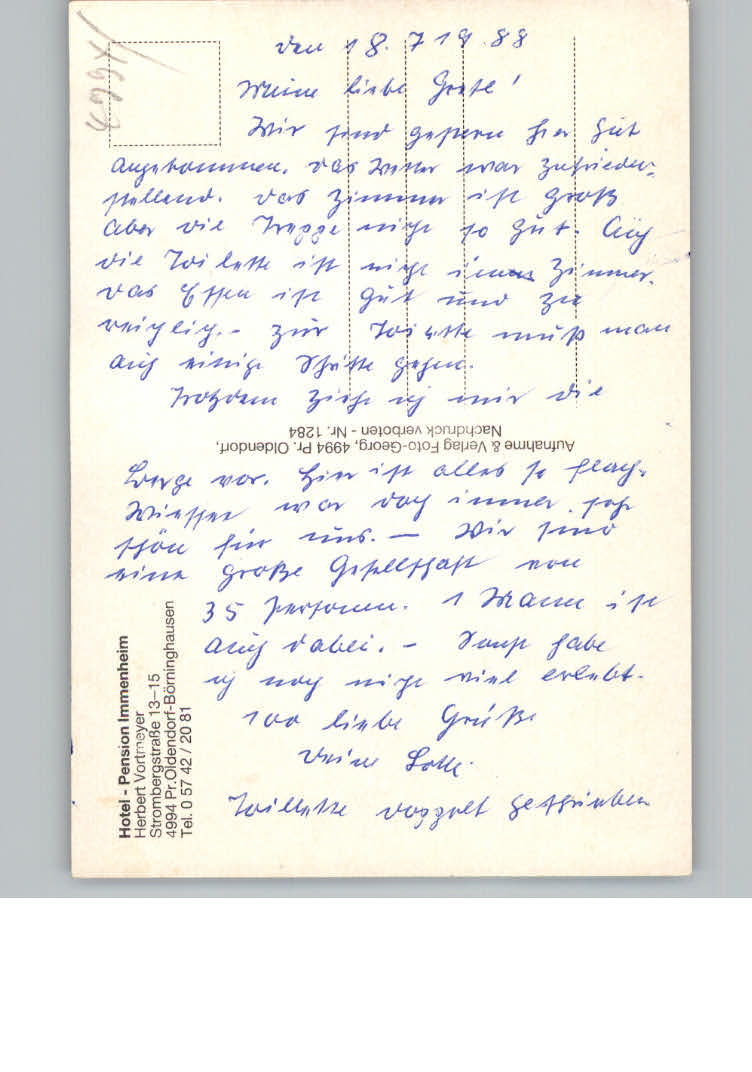 4994
den 18.7 19.88
Meine liebe Grete!
Wir sind gestern hier gut
angekommen. Das Wetter war zufrieden-
stellend. Das Zimmer ist groß
aber die Treppe nicht so gut. Auch
die Toilette ist nicht im Zimmer.
Das Essen ist gut und zu
reichlich. - Zur Toilette muß man
auch einige Schritte gehen.
Trotzdem ziehe ich mir die
Aufnahme & Verlag Foto-Georg, 4994 Pr. Oldendorf,
Nachdruck verboten - Nr. 1284
Berge vor. Hier ist alles so flach.
war doch immer sehr
schön für uns. — Wir sind
eine große Gesellschaft von
35 Personen. 1 Mann ist
auch dabei. - Sonst habe
ich noch nicht viel erlebt.
100 liebe Grüße
Deine Lotte.
Toilette doppelt geschrieben
Hotel - Pension Immenheim
Herbert Vortmeyer
Strombergstraße 13–15
4994 Pr.Oldendorf-Börninghausen
Tel. 0 57 42 / 20 81